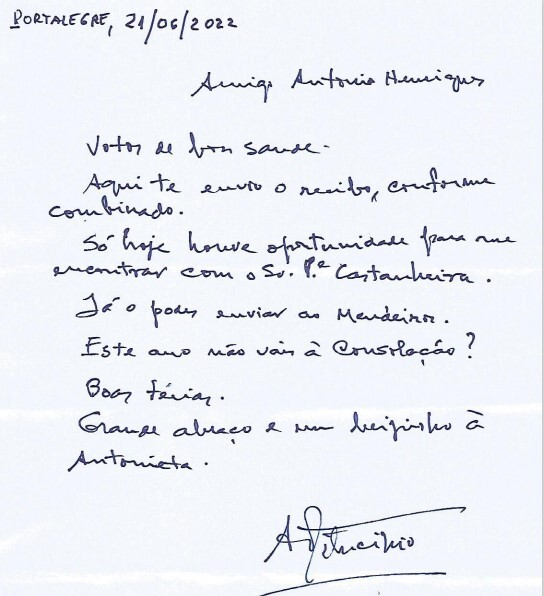 PORTALEGRE, 21/06/2022
Amigo Antonio Henriques
Votos de bon saude.
Aqui te envio o recibo, conforme
combinado.
Só hoje houve oportunidade para me
encontrar com o Sr. P.e Castanheira.
Já o podes enviar ao Mendeiros.
Este ano não vais à Consolação?
Boas férias.
Grande abraço e um beijinho à
Antonieta.